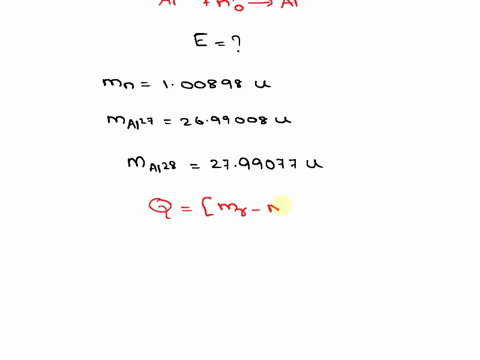 Al + n0 → Al
E = ?
mn = 1.00898 u
mAl27 = 26.99008 u
mAl28 = 27.99077 u
Q = [mr - n